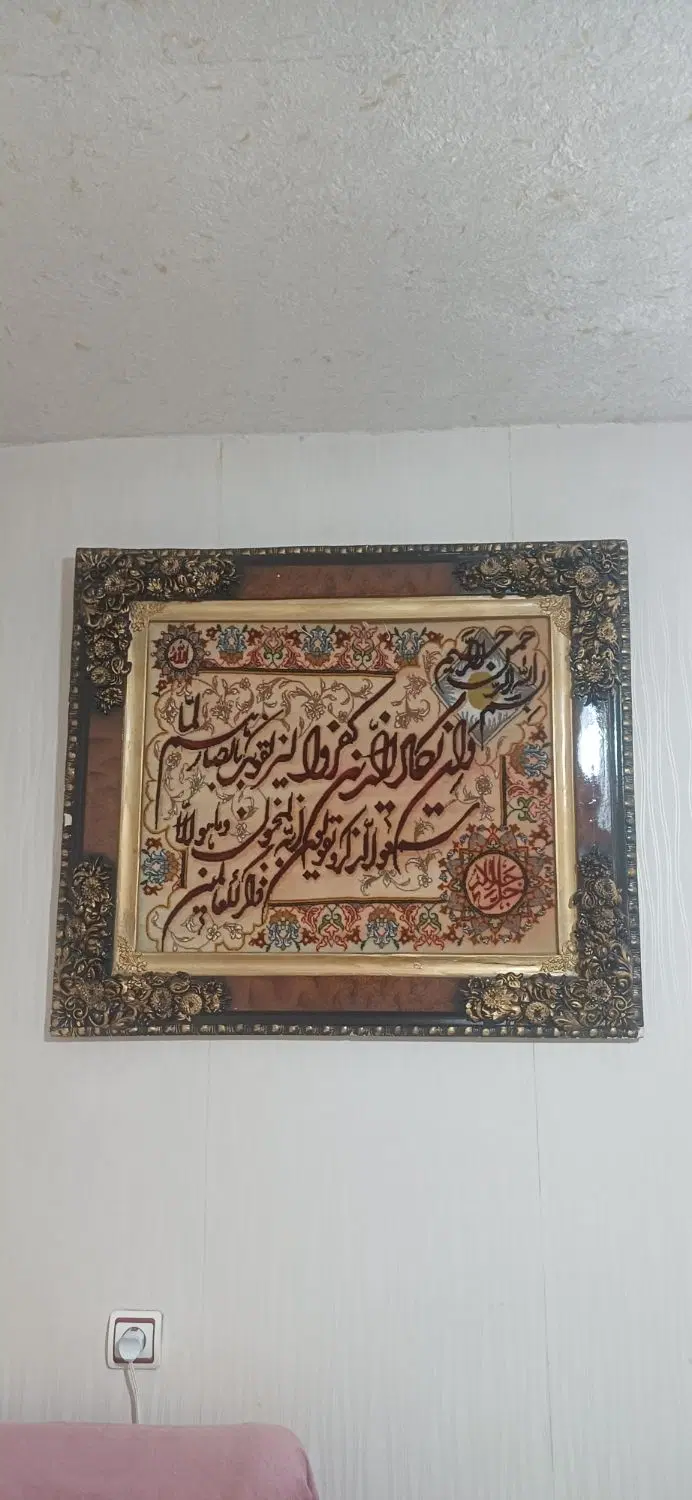 الله
بسم الله الرحمن الرحیم
وان یکاد الذین کفروا لیزلقونک بابصارهم لمّا
سمعوا الذکر و یقولون انّه لمجنون و ما هو الّا
ذکر للعالمین
جل جلاله